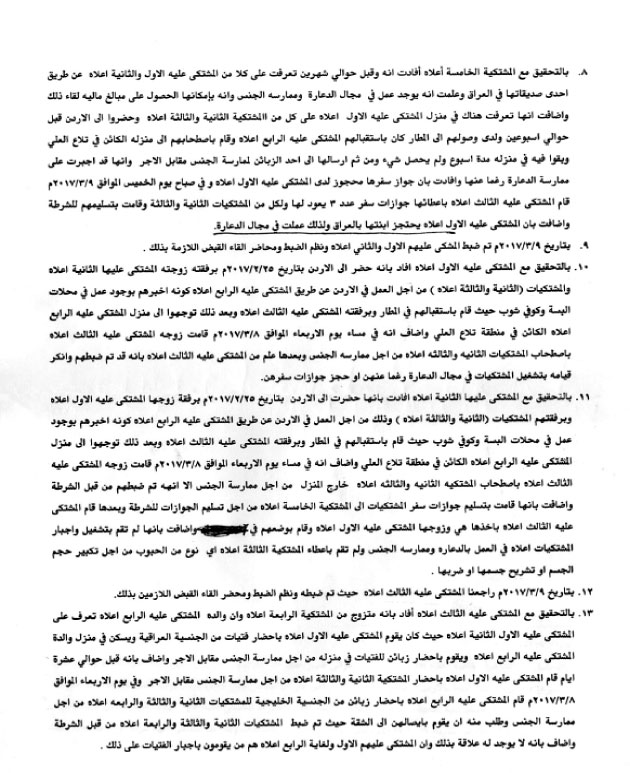 ٨. بالتحقيق مع المشتكية الخامسة أعلاه أفادت انه وقبل حوالي شهرين تعرفت على كلا من المشتكى عليه الاول والثانية اعلاه عن طريق
احدى صديقاتها في العراق وعلمت انه يوجد عمل في مجال الدعارة وممارسه الجنس وانه بإمكانها الحصول على مبالغ ماليه لقاء ذلك
واضافت انها تعرفت هناك في منزل المشتكى عليه الاول اعلاه على كل من االمشتكية الثانية والثالثة اعلاه وحضروا الى الاردن قبل
حوالي اسبوعين ولدى وصولهم الى المطار كان باستقبالهم المشتكى عليه الرابع اعلاه وقام باصطحابهم الى منزله الكائن في تلاع العلي
وبقوا فيه في منزله مدة اسبوع ولم يحصل شيء ومن ثم ارسالها الى احد الزبائن لممارسة الجنس مقابل الاجر وانها قد اجبرت على
ممارسة الدعارة رغما عنها وافادت بان جواز سفرها محجوز لدى المشتكى عليه الاول اعلاه و في صباح يوم الخميس الموافق ٢٠١٧/٣/٩م
قام المشتكى عليه الثالث اعلاه باعطائها جوازات سفر عدد ٣ يعود لها ولكل من المشتكيات الثانية والثالثة وقامت بتسليمهم للشرطة
واضافت بان المشتكى عليه الاول اعلاه يحتجز ابنتها بالعراق ولذلك عملت في مجال الدعارة.
٩. بتاريخ ٢٠١٧/٣/٩م تم ضبط المشكى عليهم الاول والثاني اعلاه ونظم الضبط ومحاضر القاء القبض اللازمة بذلك .
١٠. بالتحقيق مع المشتكى عليه الاول اعلاه افاد بانه حضر الى الاردن بتاريخ ٢٠١٧/٢/٢٥م برفقته زوجته المشتكى عليها الثانية اعلاه
والمشتكيات (الثانية والثالثة اعلاه ) من أجل العمل في الاردن عن طريق المشتكى عليه الرابع اعلاه كونه اخبرهم بوجود عمل في محلات
البسة وكوفي شوب حيث قام باستقبالهم في المطار وبرفقته المشتكى عليه الثالث اعلاه وبعد ذلك توجهوا الى منزل المشتكى عليه الرابع
اعلاه الكائن في منطقة تلاع العلي واضاف انه في مساء يوم الاربعاء الموافق ٢٠١٧/٣/٨م قامت زوجه المشتكى عليه الثالث اعلاه
باصطحاب المشتكيات الثانيه والثالثه اعلاه من اجل ممارسه الجنس وبعدها علم من المشتكى عليه الثالث اعلاه بانه قد تم ضبطهم وانكر
قيامه بتشغيل المشتكيات في مجال الدعارة رغما عنهن او حجز جوازات سفرهن.
١١. بالتحقيق مع المشتكى عليها الثانية اعلاه أفادت بانها حضرت الى الاردن بتاريخ ٢٠١٧/٢/٢٥م برفقة زوجها المشتكى عليه الاول اعلاه
وبرفقتهم المشتكيات (الثانية والثالثة اعلاه ) وذلك من اجل العمل في الاردن عن طريق المشتكى عليه الرابع اعلاه كونه اخبرهم بوجود
عمل في محلات البسة وكوفي شوب حيث قام باستقبالهم في المطار وبرفقته المشتكى عليه الثالث اعلاه وبعد ذلك توجهوا الى منزل
المشتكى عليه الرابع اعلاه الكائن في منطقة تلاع العلي واضاف انه في مساء يوم الاربعاء الموافق ٢٠١٧/٣/٨م قامت زوجه المشتكى عليه
الثالث اعلاه باصطحاب المشتكيه الثانيه والثالثه اعلاه خارج المنزل من أجل ممارسة الجنس الا انهه تم ضبطهم من قبل الشرطة
واضافت بانها قامت بتسليم جوازات سفر المشتكيات الى المشتكية الخامسة اعلاه من اجل تسليم الجوازات للشرطة وبعدها قام المشتكى
عليه الثالث اعلاه باخذها هي وزوجها المشتكى عليه الاول اعلاه وقام بوضعهم في واضافت بانها لم تقم بتشغيل واجبار
المشتكيات اعلاه في العمل بالدعاره وممارسه الجنس ولم تقم باعطاء المشتكية الثالثة اعلاه اي نوع من الحبوب من اجل تكبير حجم
الجسم او تشريح جسمها او ضربها .
١٢. بتاريخ ٢٠١٧/٣/٩م راجعنا المشتكى عليه الثالث اعلاه حيث تم ضبطه ونظم الضبط ومحضر القاء القبض اللازمين بذلك.
١٣. بالتحقيق مع المشتكى عليه الثالث اعلاه أفاد بانه متزوج من المشتكية الرابعة اعلاه وان والده المشتكى عليه الرابع اعلاه تعرف على
المشتكى عليه الاول الثانية اعلاه حيث كان يقوم المشتكى عليه الاول اعلاه باحضار فتيات من الجنسية العراقية ويسكن في منزل والدة
المشتكى عليه الرابع اعلاه ويقوم باحضار زبائن للفتيات في منزله من اجل ممارسة الجنس مقابل الاجر واضاف بانه قبل حوالي عشرة
ايام قام المشتكى عليه الاول اعلاه باحضار المشتكية الثانية والثالثة اعلاه من اجل ممارسة الجنس مقابل الاجر وفي يوم الاربعاء الموافق
٢٠١٧/٣/٨م قام المشتكى عليه الرابع اعلاه باحضار زبائن من الجنسية الخليجية للمشتكيات الثانية والثالثة والرابعه اعلاه من اجل
ممارسة الجنس وطلب منه ان يقوم بايصالهن الى الشقة حيث تم ضبط المشتكيات الثانية والثالثة والرابعة اعلاه من قبل الشرطة
واضاف بانه لا يوجد له علاقة بذلك وان المشتكى عليهم الاول ولغاية الرابع اعلاه هم من يقومون باجبار الفتيات على ذلك .